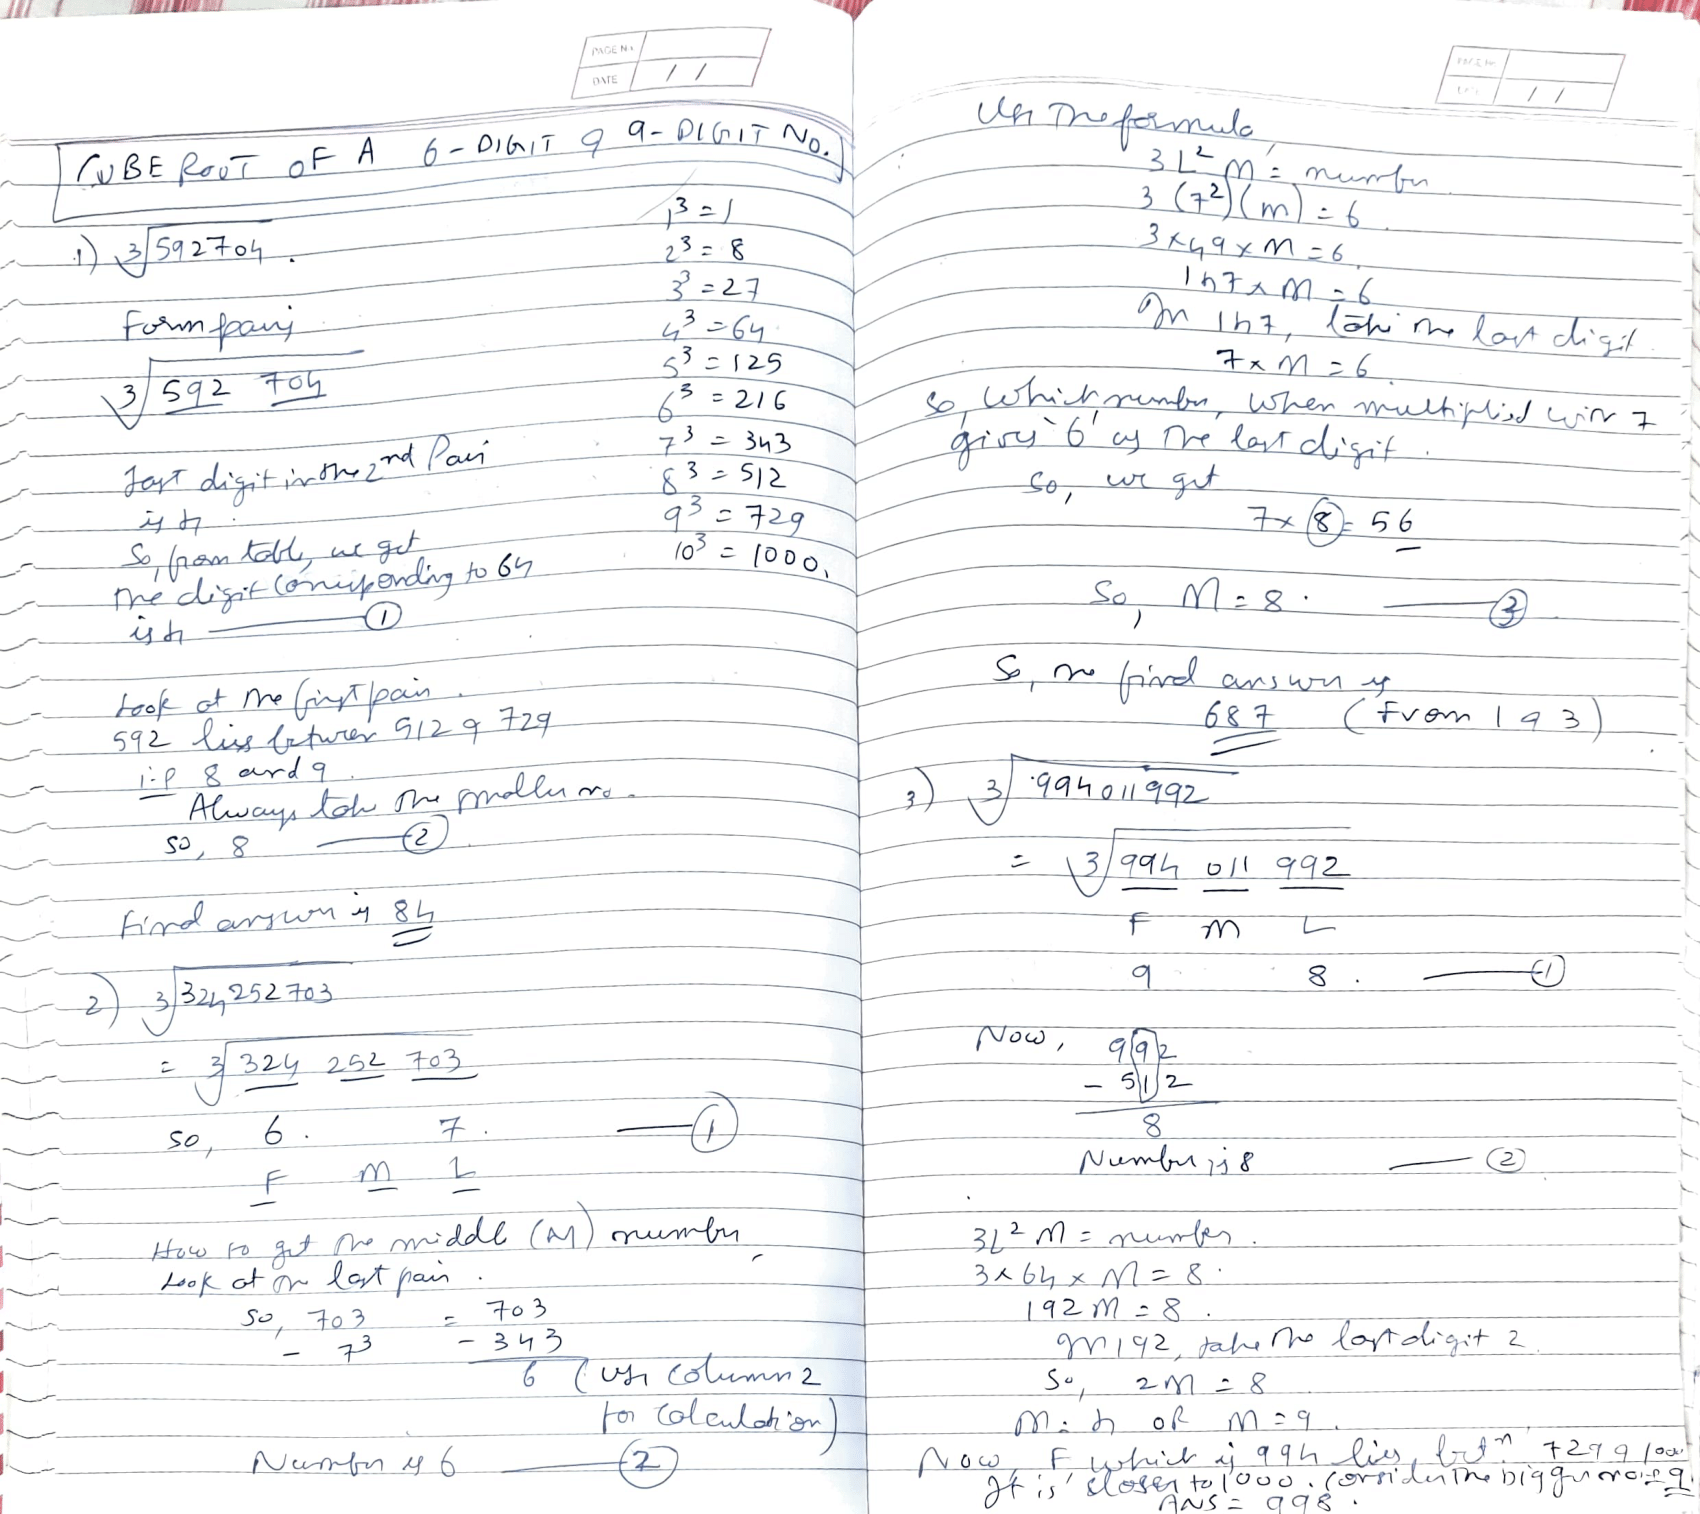 PAGE No.
DATE / /
CUBE ROOT OF A 6-DIGIT & 9-DIGIT NO.
1) ∛592704.
Form pairs
∛592 704
Last digit in the 2nd Pair
is 4.
So, from table, we get
the digit corresponding to 64
is 4 — ①
Look at the first pair.
592 lies between 512 & 729
i.e 8 and 9.
Always take the smaller no.
so, 8 — ②
Final answer is 84
1³ = 1
2³ = 8
3³ = 27
4³ = 64
5³ = 125
6³ = 216
7³ = 343
8³ = 512
9³ = 729
10³ = 1000.
2) ∛324252703
= ∛324 252 703
so, 6. 7. — ①
F M L
How to get the middle (M) number
Look at the last pair.
So, 703 = 703
- 7³ - 343
6 (use column 2
for calculation)
Number is 6 — ②
PAGE No.
DATE / /
Use the formula,
3L²M = number
3 (7²)(m) = 6.
3×49×M = 6.
147×M = 6
In 147, take the last digit.
7×M = 6.
So, which number, when multiplied with 7
gives '6' as the last digit.
So, we get
7×⑧ = 56
So, M = 8. — ③
So, the final answer is
687 (From 1 & 3)
3) ∛994011992
= ∛994 011 992
F M L
9 8. — ①
Now, 992
- 512
8
Number is 8 — ②
3L²M = number.
3×64×M = 8.
192M = 8.
In 192, take the last digit 2
So, 2M = 8
M = 4 OR M = 9.
Now, F which is 994 lies betn 729 & 1000
It is closer to 1000. Consider the bigger no i.e 9.
ANS = 998.